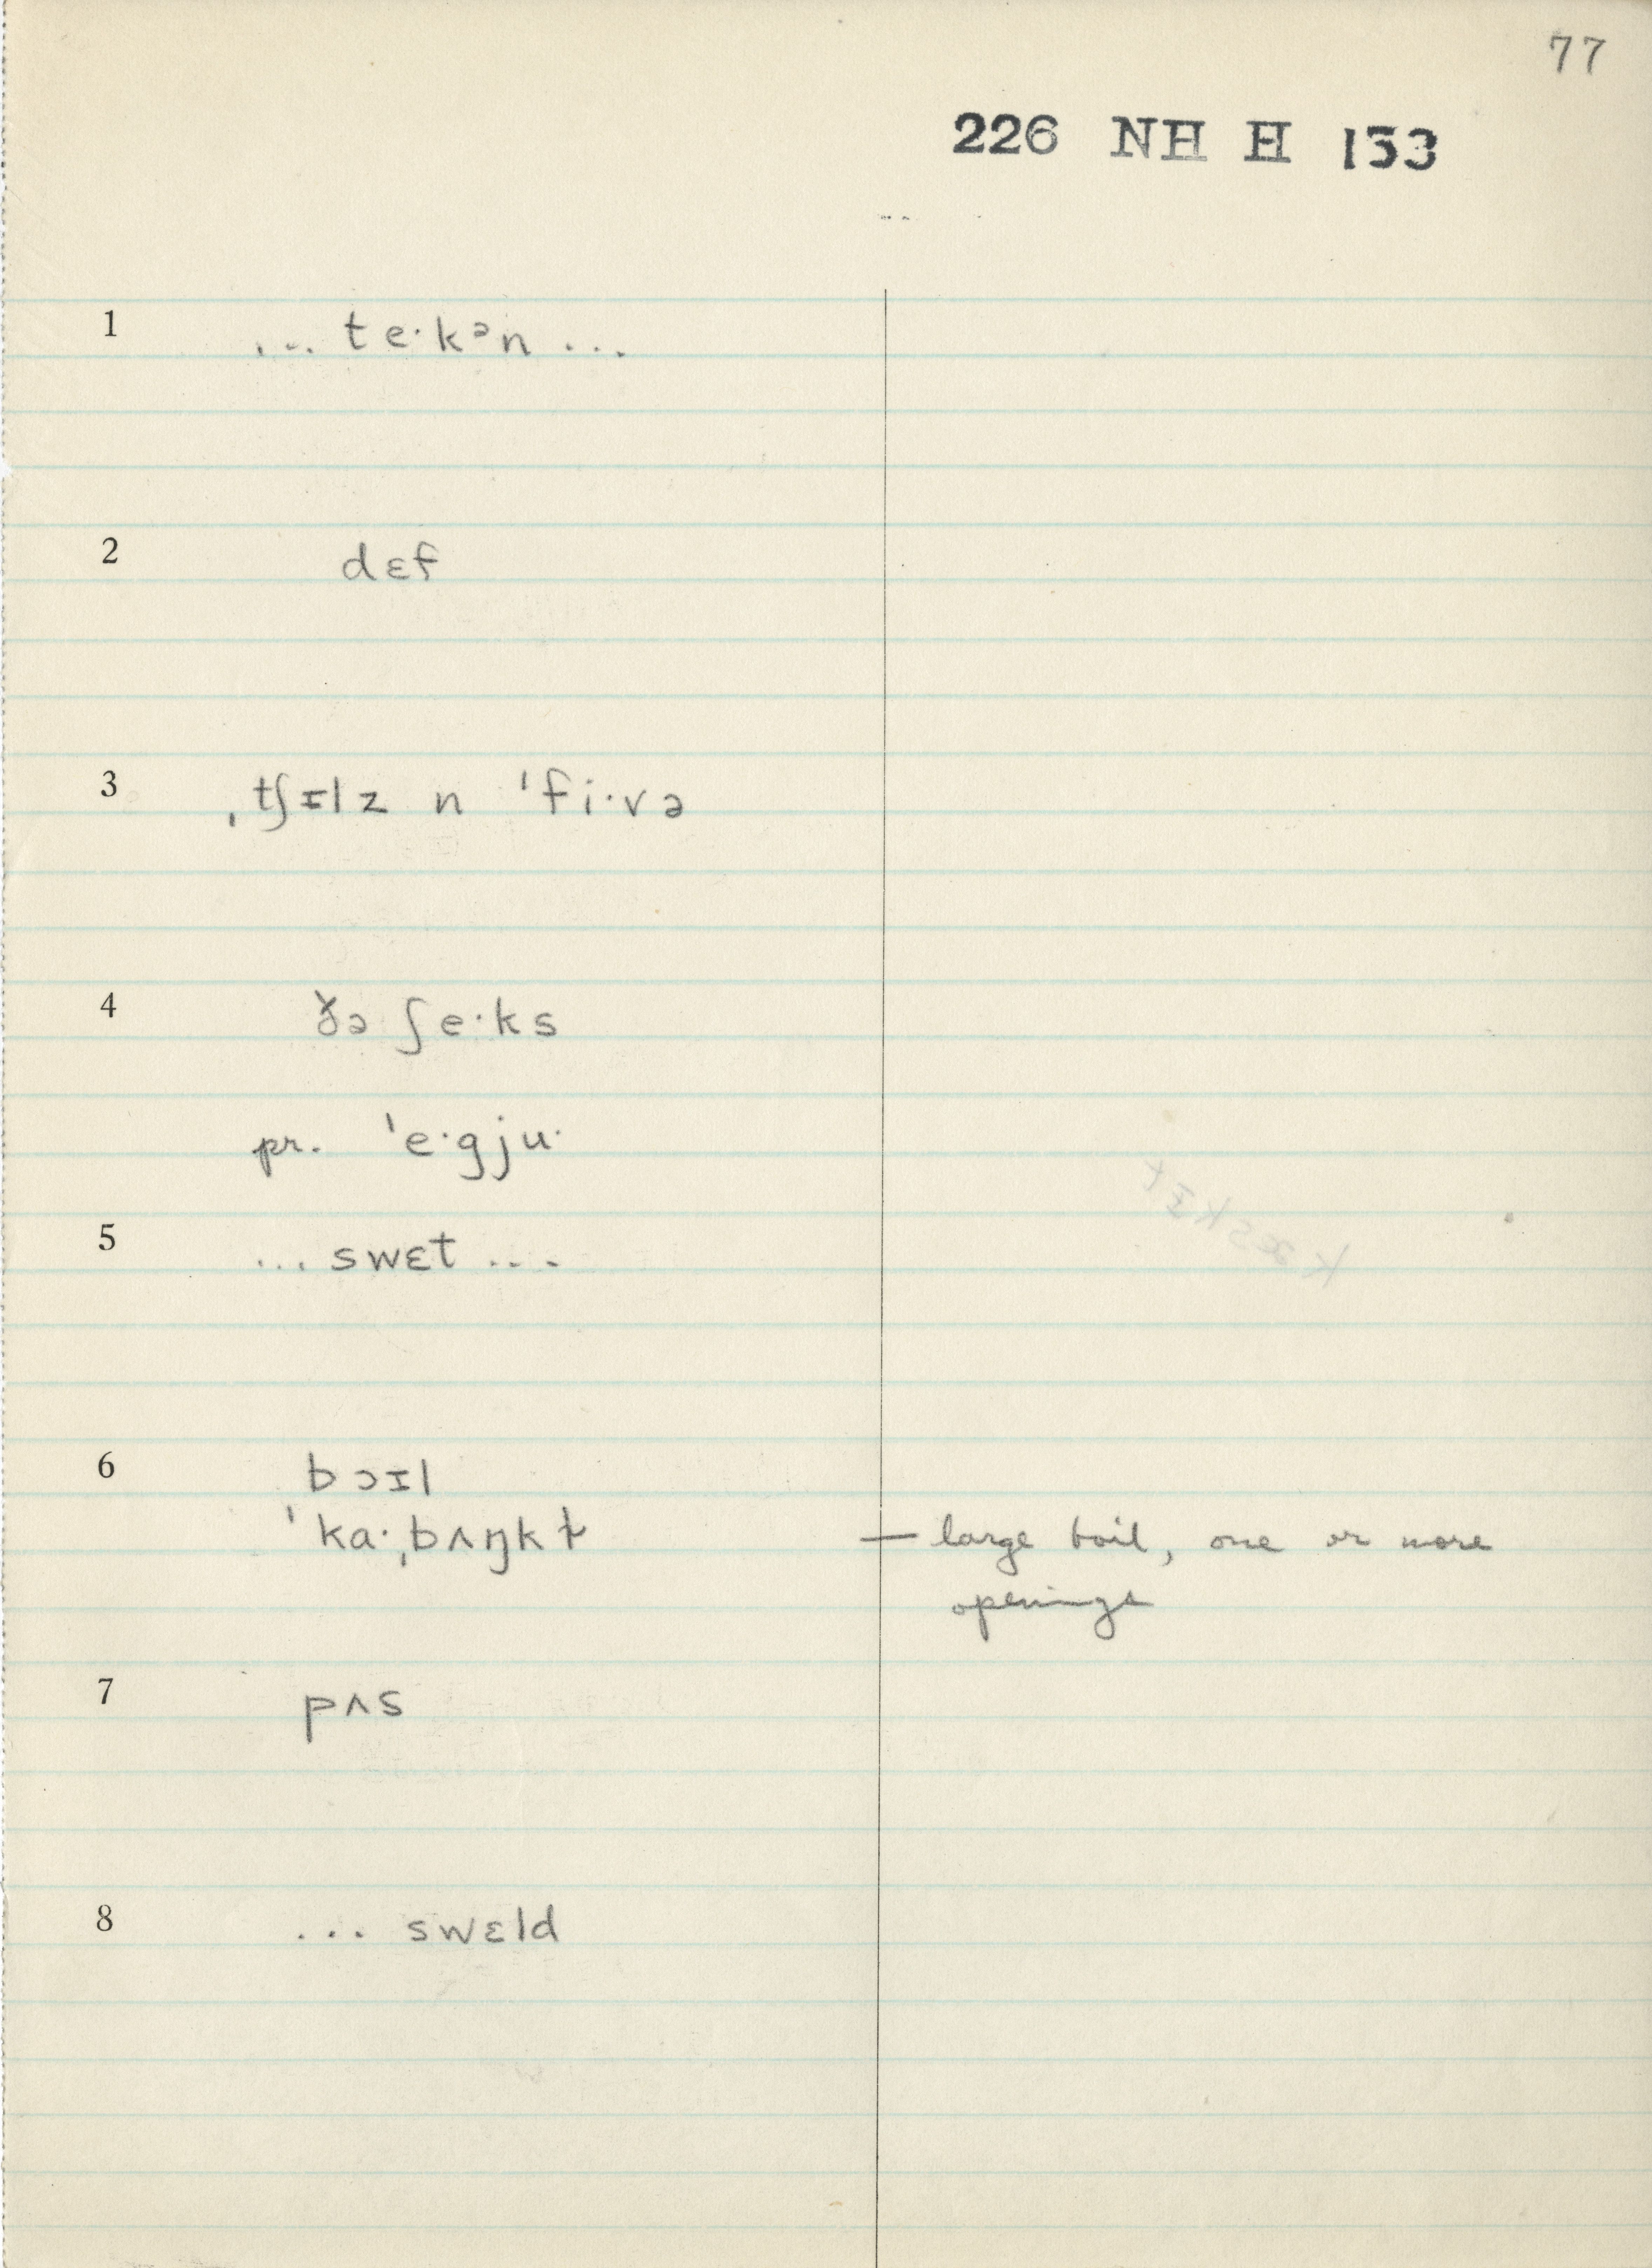 77
226 NH H 153
1 ... te·kᵊn ...
2 dɛf
3 ˌtʃɪlz n ˈfi·və
4 ðə ʃe·ks
pr. ˈe·gju·
5 ... swɛt ...
kæskɪt
6 bɔɪl
ˈka·ˌbʌŋkɫ — large boil, one or more
openings
7 pʌs
8 ... swɛld